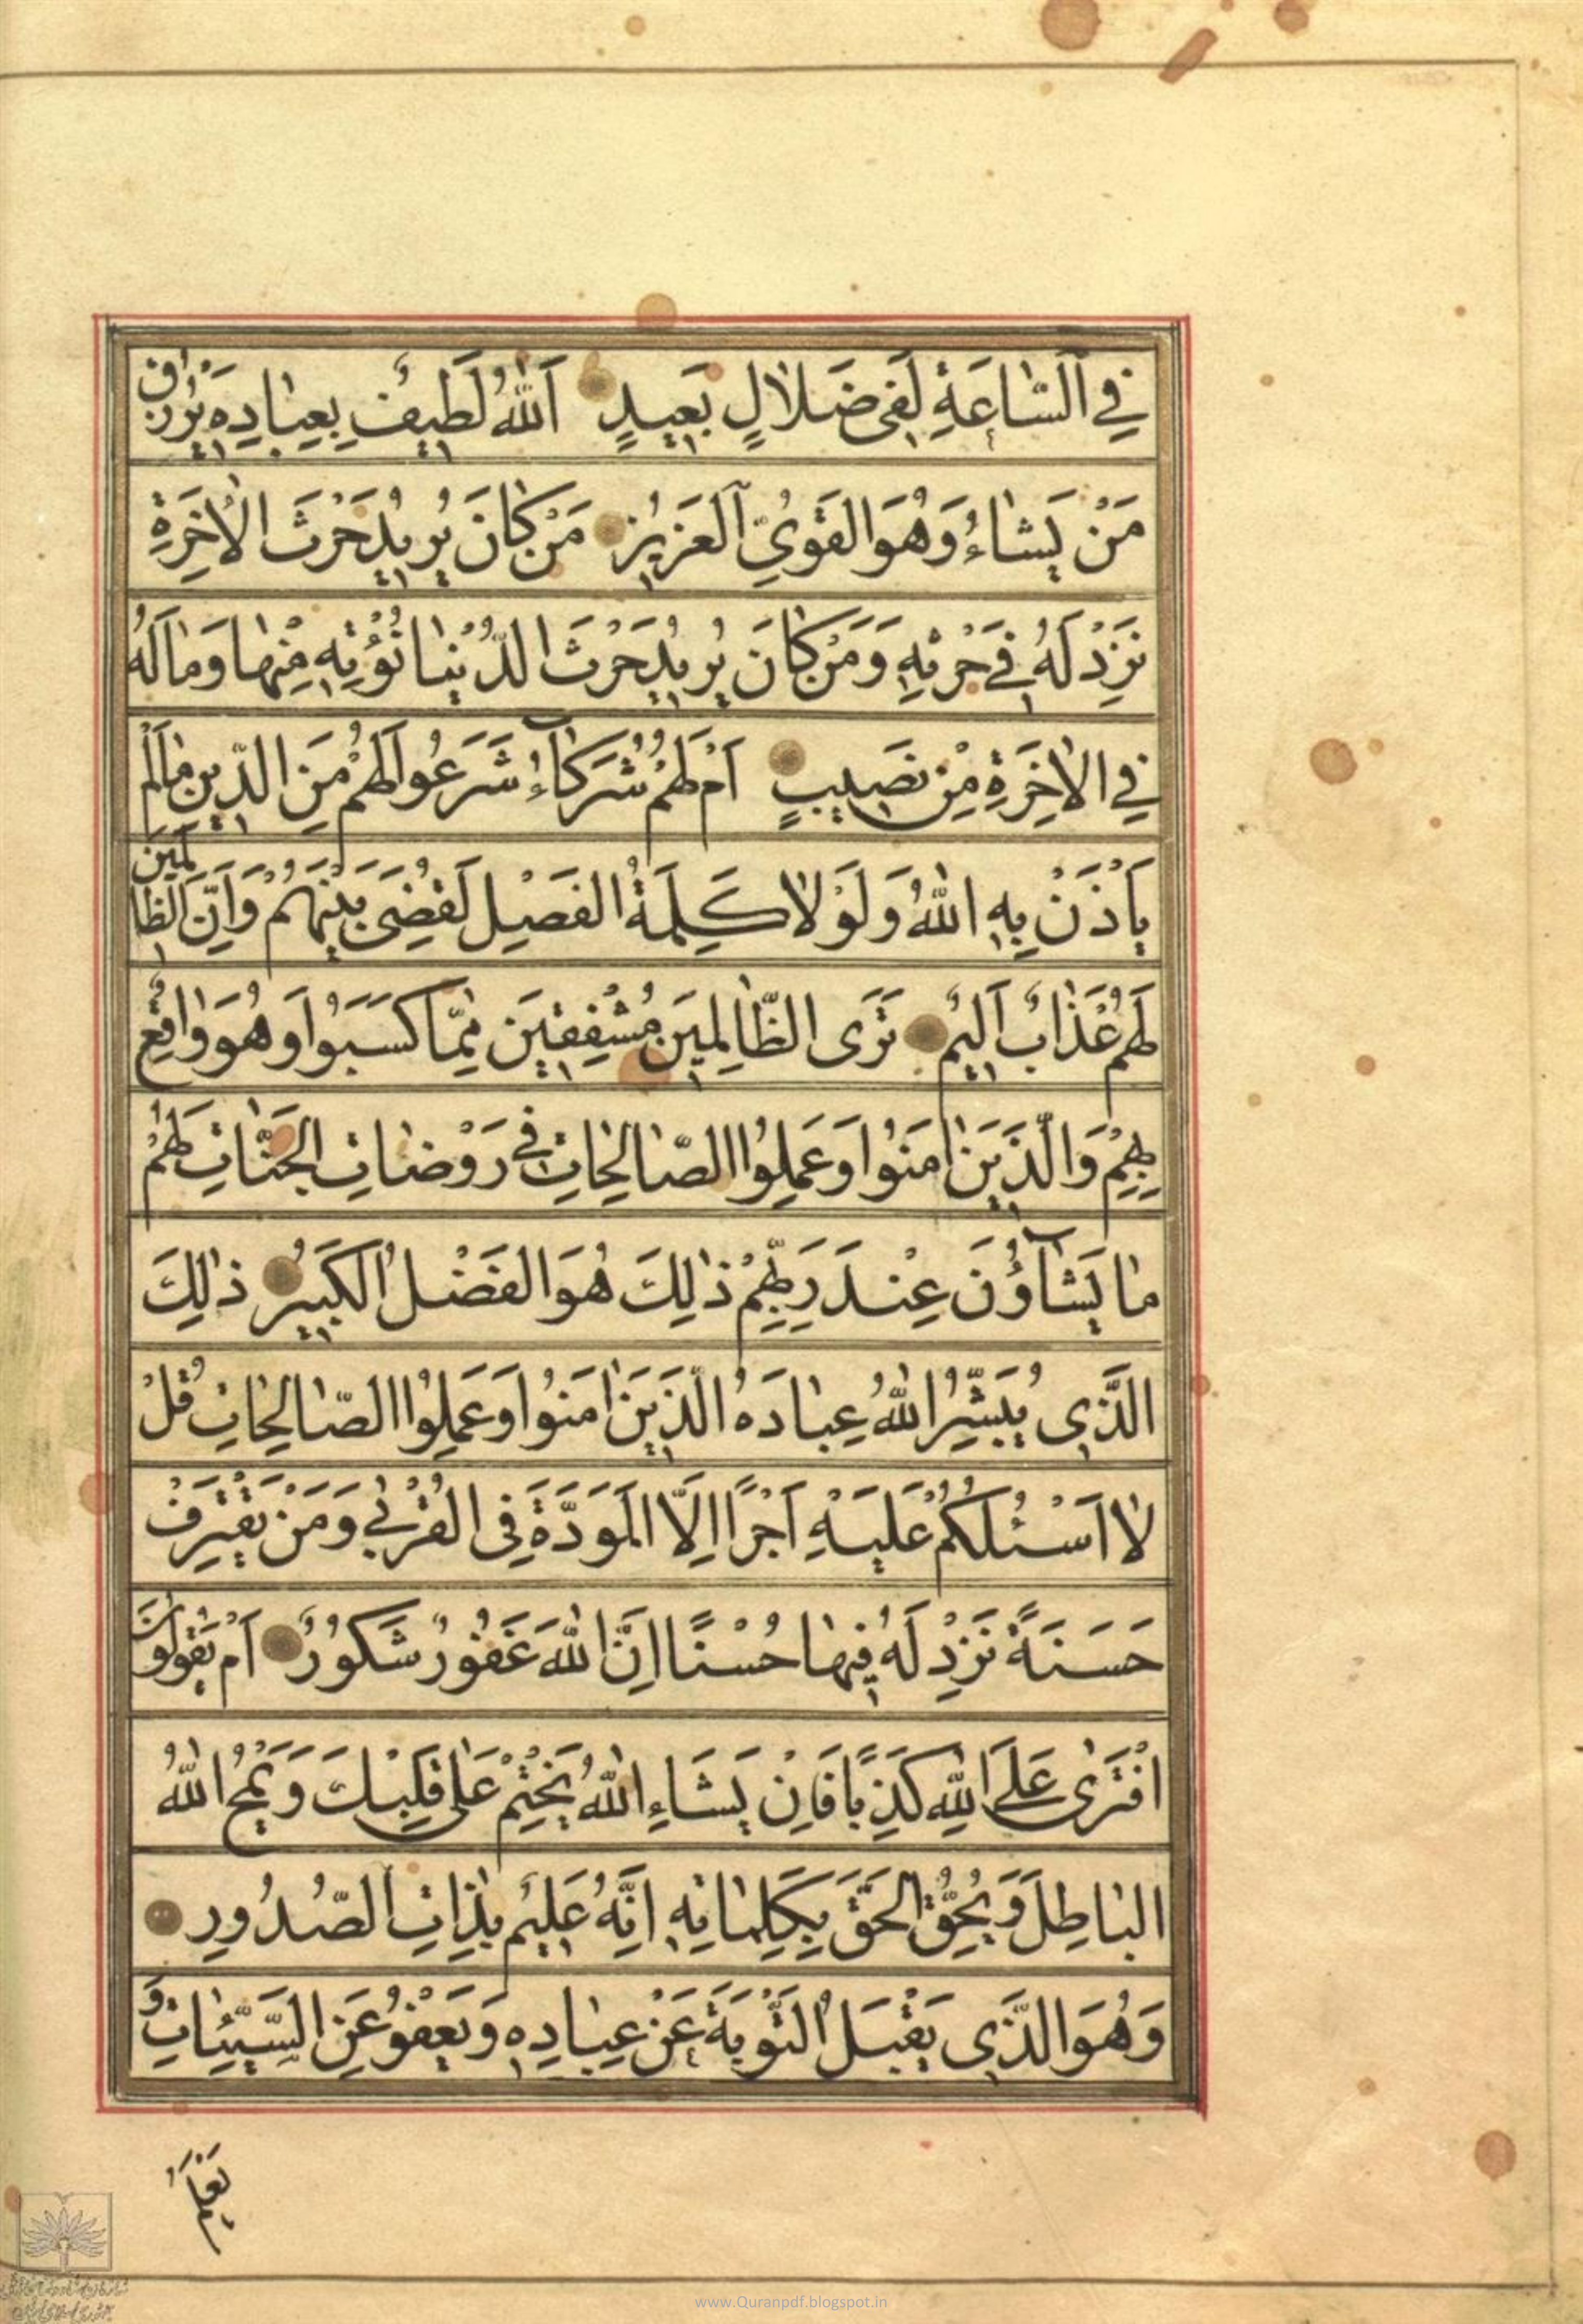 فِي السّٰاعَةِ لَفِي ضَلَالٍ بَعِيدٍ اَللّٰهُ لَطِيفٌ بِعِبٰادِهِ يَرْزُقُ
مَنْ يَشٰاءُ وَهُوَ الْقَوِيُّ الْعَزِيزُ مَنْ كٰانَ يُرِيدُ حَرْثَ الْاٰخِرَةِ
نَزِدْ لَهُ فِي حَرْثِهِ وَمَنْ كٰانَ يُرِيدُ حَرْثَ الدُّنْيٰا نُؤْتِهِ مِنْهٰا وَمٰا لَهُ
فِي الْاٰخِرَةِ مِنْ نَصِيبٍ اَمْ لَهُمْ شُرَكٰاءُ شَرَعُوا لَهُمْ مِنَ الدِّينِ مٰا لَمْ
يَأْذَنْ بِهِ اللّٰهُ وَلَوْلٰا كَلِمَةُ الْفَصْلِ لَقُضِيَ بَيْنَهُمْ وَاِنَّ الظّٰالِمِينَ
لَهُمْ عَذٰابٌ اَلِيمٌ تَرَى الظّٰالِمِينَ مُشْفِقِينَ مِمّٰا كَسَبُوا وَهُوَ وٰاقِعٌ
بِهِمْ وَالَّذِينَ اٰمَنُوا وَعَمِلُوا الصّٰالِحٰاتِ فِي رَوْضٰاتِ الْجَنّٰاتِ لَهُمْ
مٰا يَشٰاؤُنَ عِنْدَ رَبِّهِمْ ذٰلِكَ هُوَ الْفَضْلُ الْكَبِيرُ ذٰلِكَ
الَّذِي يُبَشِّرُ اللّٰهُ عِبٰادَهُ الَّذِينَ اٰمَنُوا وَعَمِلُوا الصّٰالِحٰاتِ قُلْ
لٰا اَسْئَلُكُمْ عَلَيْهِ اَجْرًا اِلَّا الْمَوَدَّةَ فِي الْقُرْبٰى وَمَنْ يَقْتَرِفْ
حَسَنَةً نَزِدْ لَهُ فِيهٰا حُسْنًا اِنَّ اللّٰهَ غَفُورٌ شَكُورٌ اَمْ يَقُولُونَ
افْتَرٰى عَلَى اللّٰهِ كَذِبًا فَاِنْ يَشَاءِ اللّٰهُ يَخْتِمْ عَلٰى قَلْبِكَ وَيَمْحُ اللّٰهُ
الْبٰاطِلَ وَيُحِقُّ الْحَقَّ بِكَلِمٰاتِهِ اِنَّهُ عَلِيمٌ بِذٰاتِ الصُّدُورِ
وَهُوَ الَّذِي يَقْبَلُ التَّوْبَةَ عَنْ عِبٰادِهِ وَيَعْفُو عَنِ السَّيِّئٰاتِ وَ
يَعْلَمُ
www.Quranpdf.blogspot.in